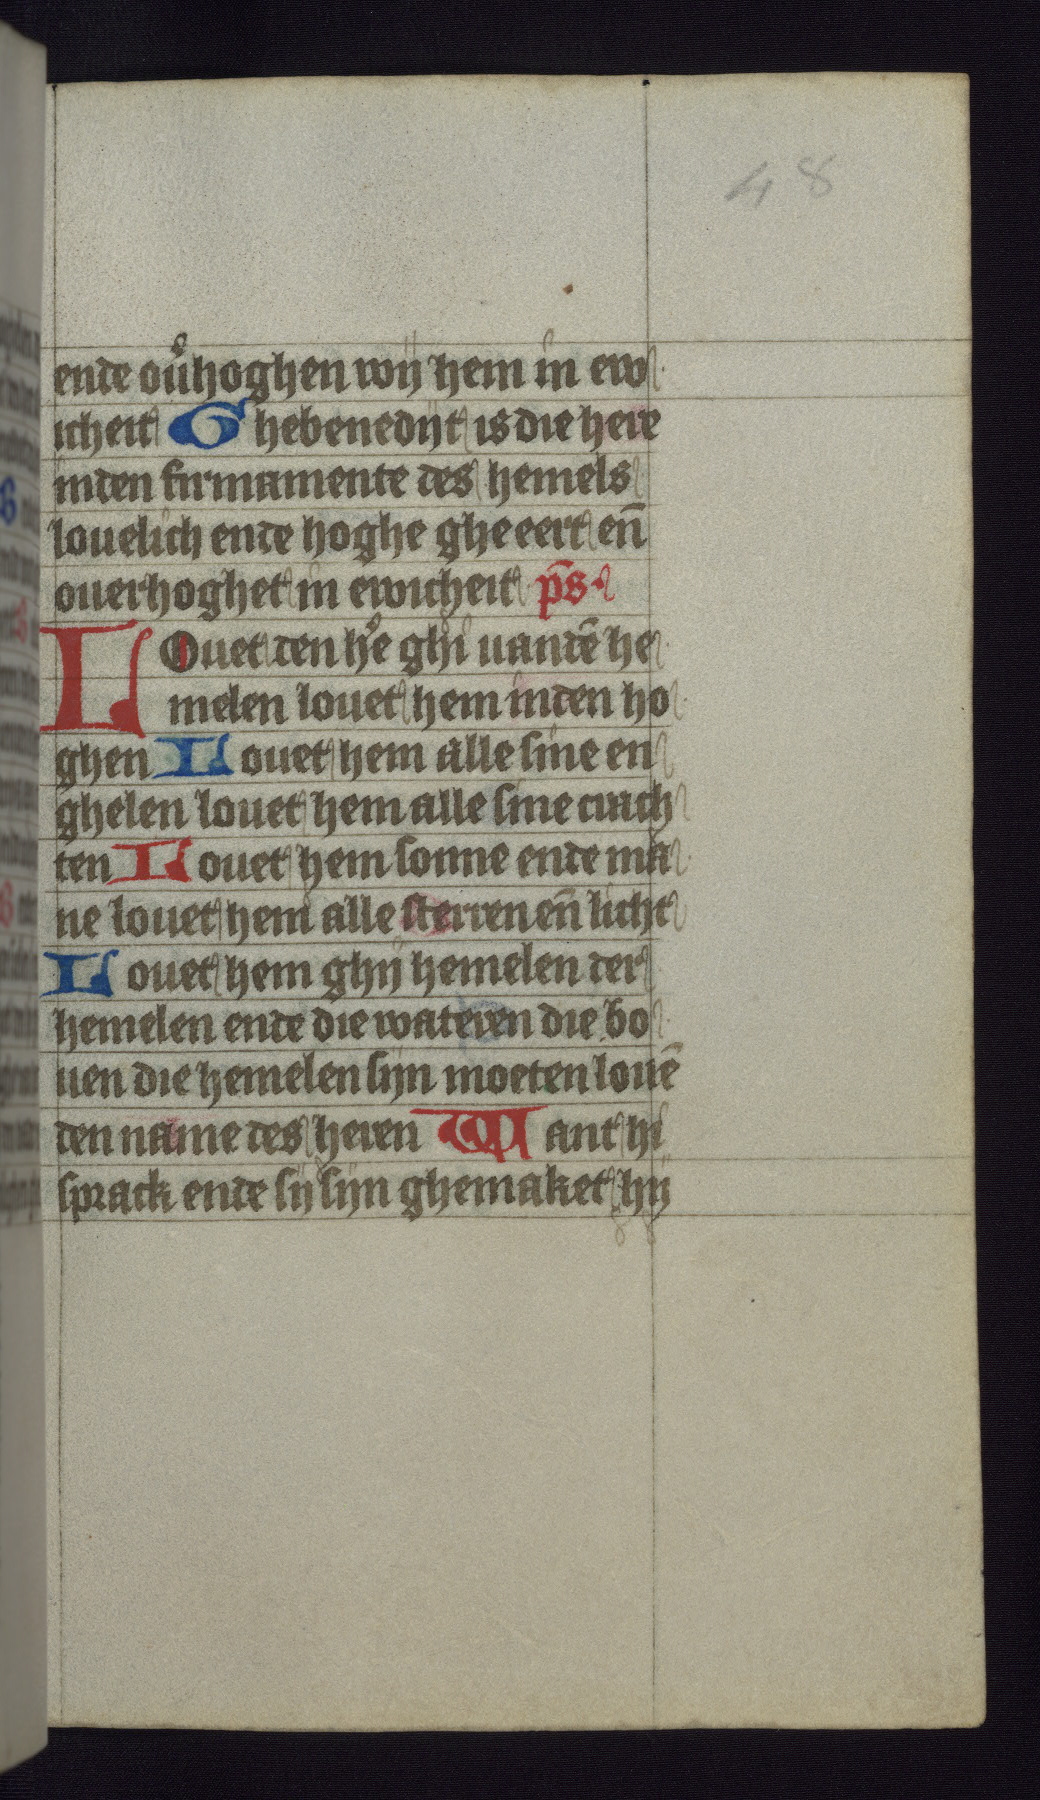 48
ende ou̓hoghen wij hem in ew
icheit Ghebenedijt is die here
inden firmamente des hemels
louelich ende hoghe gheeert en̄
ouerhoghet in ewicheit ps̄
Louet den he̓ ghi uandē he
melen louet hem inden ho
ghen Louet hem alle sine en
ghelen louet hem alle sine crach
ten Louet hem sonne ende ma
ne louet hem alle sterren en̄ licht
Louet hem ghij hemelen der
hemelen ende die wateren die bo
uen die hemelen sijn moeten louē
den name des heren Want hi
sprack ende sij sijn ghemaket hij